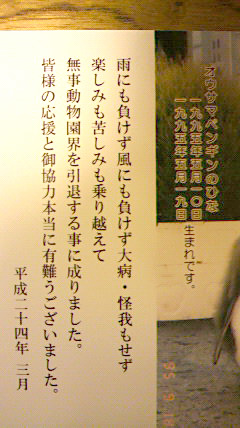 オウサマペンギンのひな
一九九五年五月一〇日
一九九五年五月一九日
生まれです。
雨にも負けず風にも負けず大病・怪我もせず
楽しみも苦しみも乗り越えて
無事動物園界を引退する事に成りました。
皆様の応援と御協力本当に有難うございました。
平成二十四年 三月